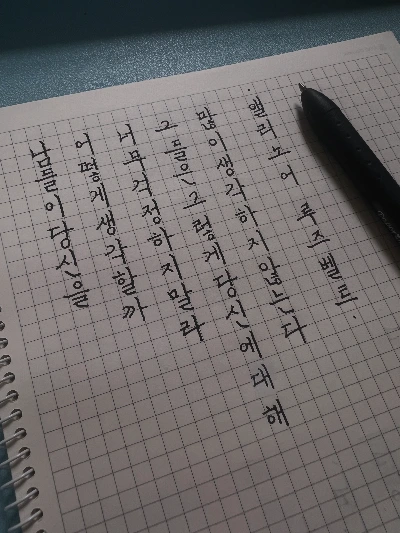 남들이 당신을
어떻게 생각할까
너무 걱정하지 말라
그들은 그렇게 당신에 대해
많이 생각하지 않는다
엘리노어 루즈벨트